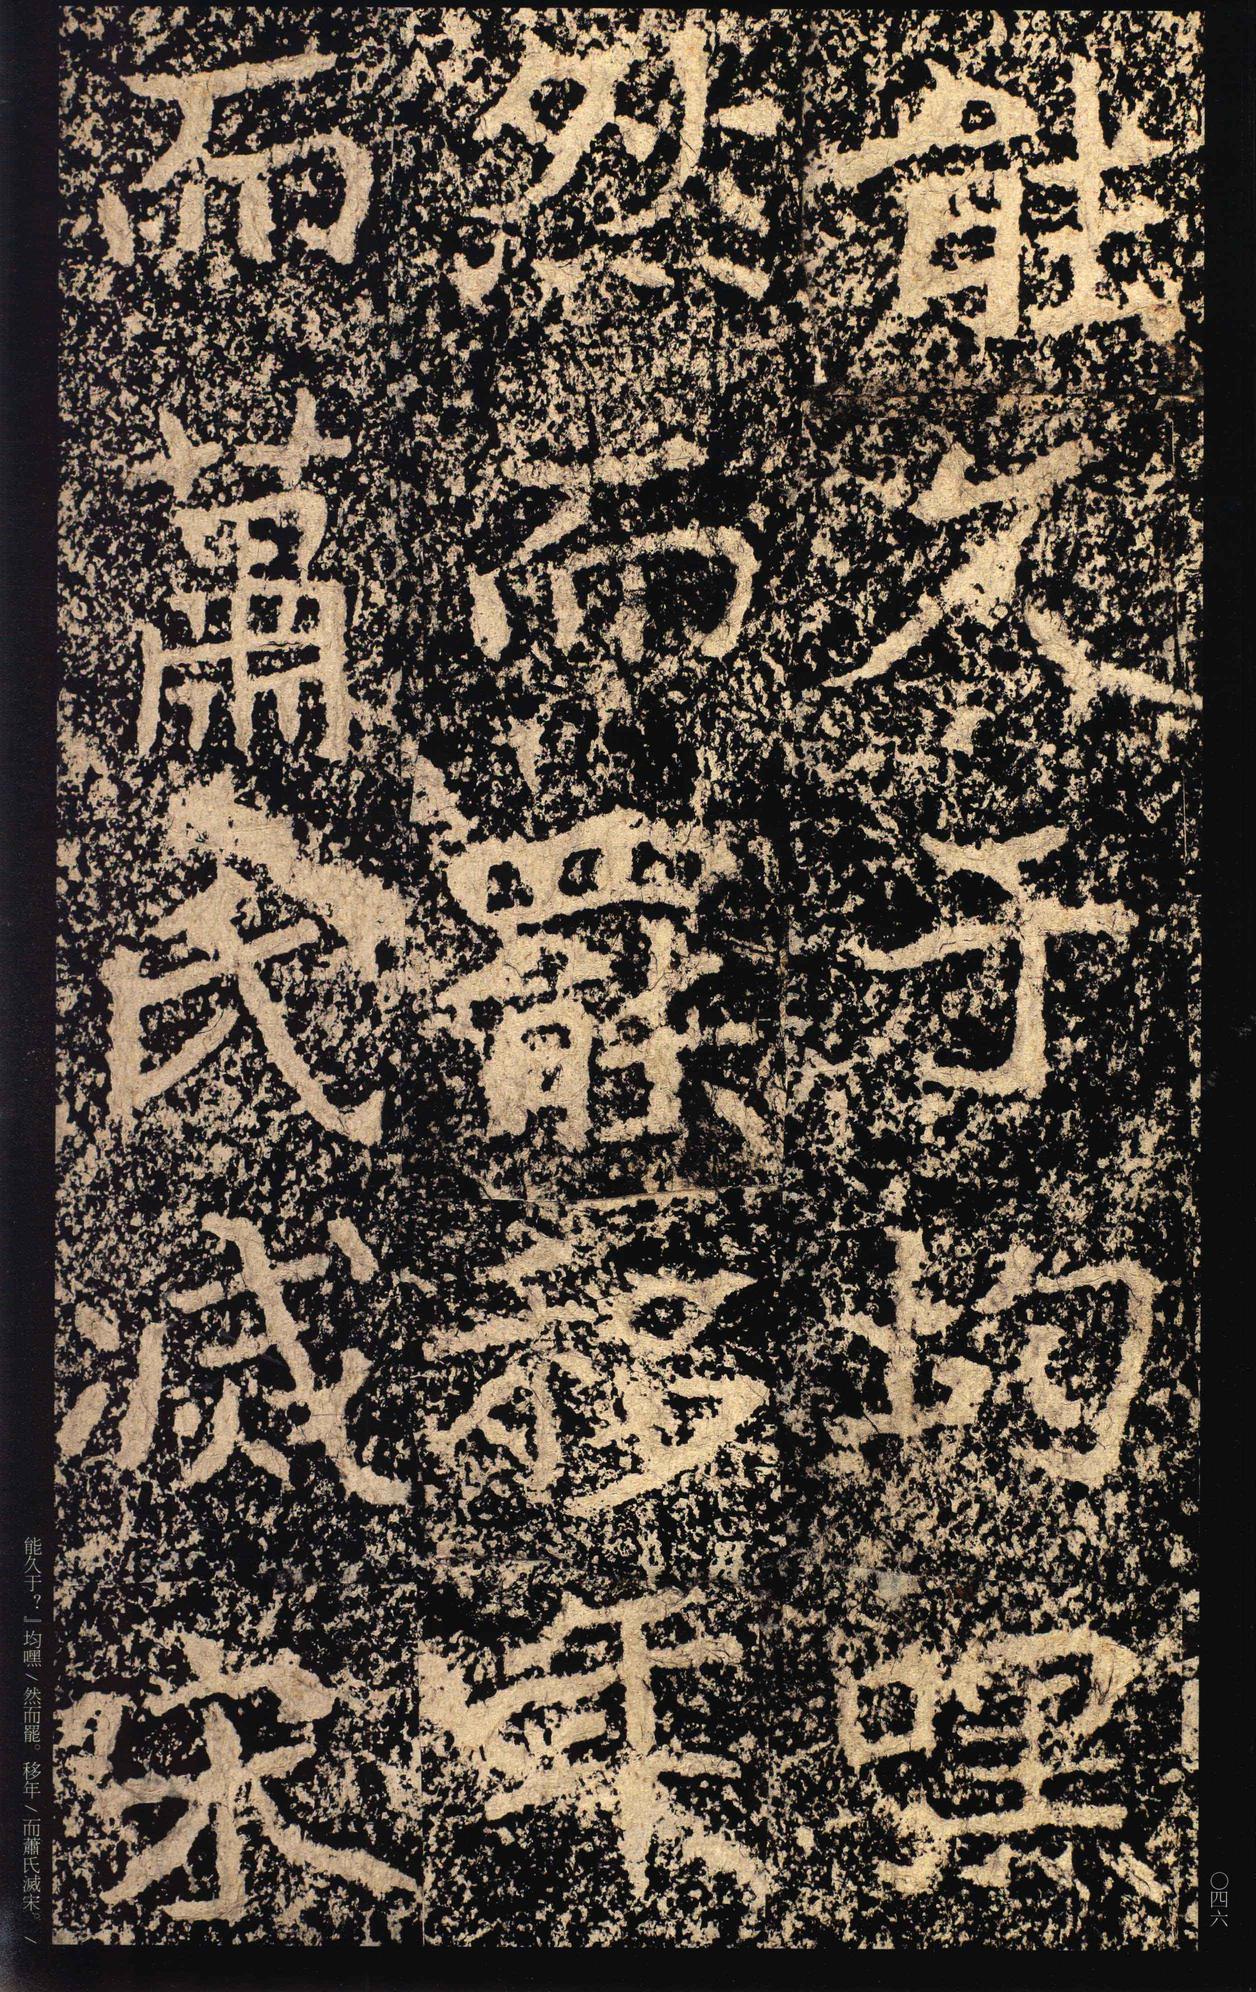 能久于均嘿
然而罷移年
而蕭氏滅宋
能久于？』均嘿／然而罷。移年／而蕭氏滅宋。／
〇四六